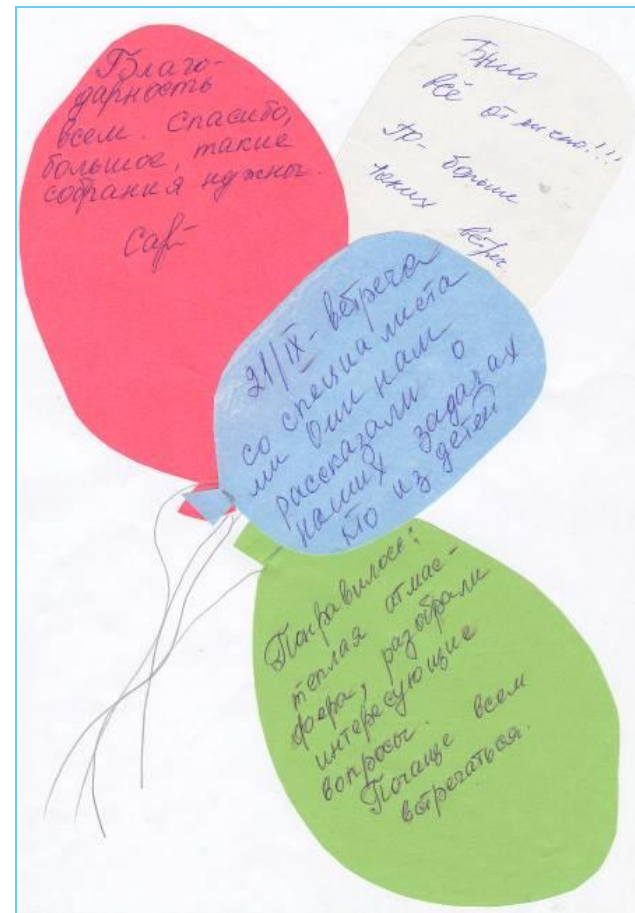 Благо-
дарность
всем. Спасибо,
большое, такие
собрания нужны.
Было
всё отлично!!!
больше
таких встреч.
21/IX - встреча
со специалиста
ми Они нам
рассказали о
наших задачах
кто из детей
Понравилось:
теплая атмас-
фера, разобрали
интересующие
вопросы.
Почаще всем
встречаться.